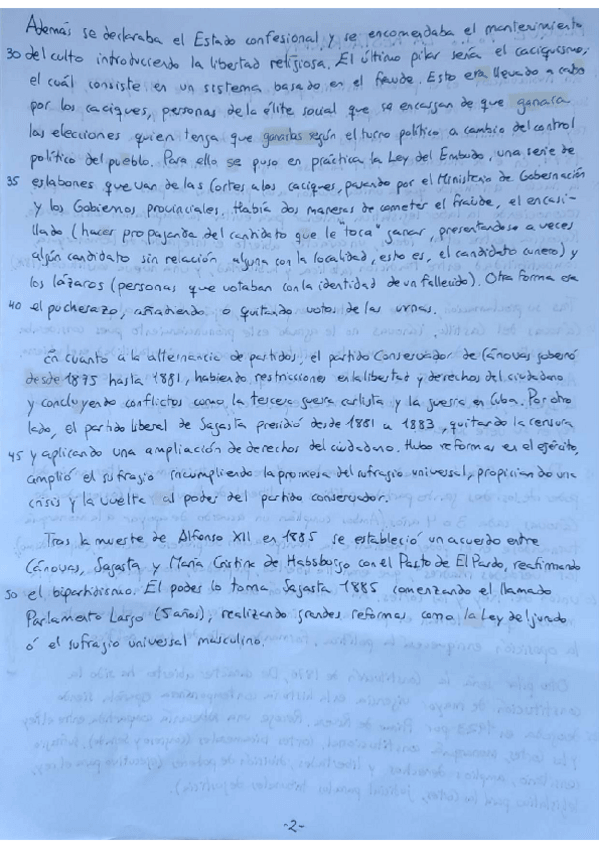 Además se declaraba el Estado confesional y se encomendaba el mantenimiento
30 del culto introduciendo la libertad religiosa. El último pilar sería el caciquismo,
el cuál consiste en un sistema basado en el fraude. Esto era llevado a cabo
por los caciques, personas de la élite social que se encargan de que ganara
las elecciones quien tenga que ganarlas según el turno político a cambio del control
político del pueblo. Para ello se puso en práctica la Ley del Embudo, una serie de
35 eslabones que van de las Cortes a los caciques, pasando por el Ministerio de Gobernación
y los Gobiernos provinciales. Había dos maneras de cometer el fraude, el encasi-
llado (hacer propaganda del candidato que le "toca" ganar, presentandose a veces
algún candidato sin relación alguna con la localidad, esto es, el candidato cunero) y
los lázaros (personas que votaban con la identidad de un fallecido). Otra forma era
40 el pucherazo, añadiendo o quitando votos de las urnas.
En cuanto a la alternancia de partidos, el partido Conservador de Cánovas gobernó
desde 1875 hasta 1881, habiendo restricciones en la libertad y derechos del ciudadano
y concluyendo conflictos como la tercera guerra carlista y la guerra en Cuba. Por otro
lado, el partido liberal de Sagasta presidió desde 1881 a 1883, quitando la censura
45 y aplicando una ampliación de derechos del ciudadano. Hubo reformas en el ejército,
amplió el sufragio incumpliendo la promesa del sufragio universal, propiciando una
crisis y la vuelta al poder del partido conservador.
Tras la muerte de Alfonso XII en 1885 se estableció un acuerdo entre
Cánovas, Sagasta y María Cristina de Habsburgo con el Pacto de El Pardo, reafirmando
50 el bipartidismo. El poder lo toma Sagasta 1885 comenzando el llamado
Parlamento Largo (5 años), realizando grandes reformas como la Ley del jurado
ó el sufragio universal masculino.
-2-